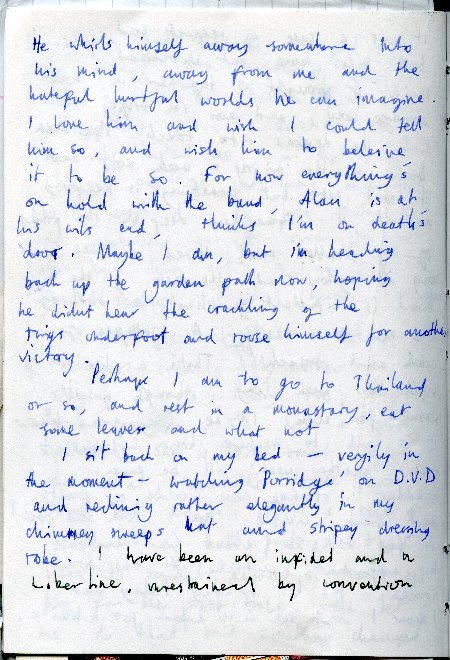 He whirls himself away somewhere into
his mind, away from me and the
hateful hurtful worlds he can imagine.
I love him and wish I could tell
him so, and wish him to beleive
it to be so. For now everything's
on hold with the band, Alan is at
his wits end, thinks I'm on death's
door. Maybe I am, but i'm heading
back up the garden path now, hoping
he didnt hear the crackling of the
twigs underfoot and roose himself for another
victory.
Perhaps I am to go to Thailand
or so, and rest in a monastary, eat
some leaves and what not
I sit back on my bed – in
the moment – watching 'Porridge' on D.V.D
and reclining rather elegantly in my
chimney sweeps hat and stripey dressing
robe. I have been an infidel and a
Libertine, unrestrained by convention